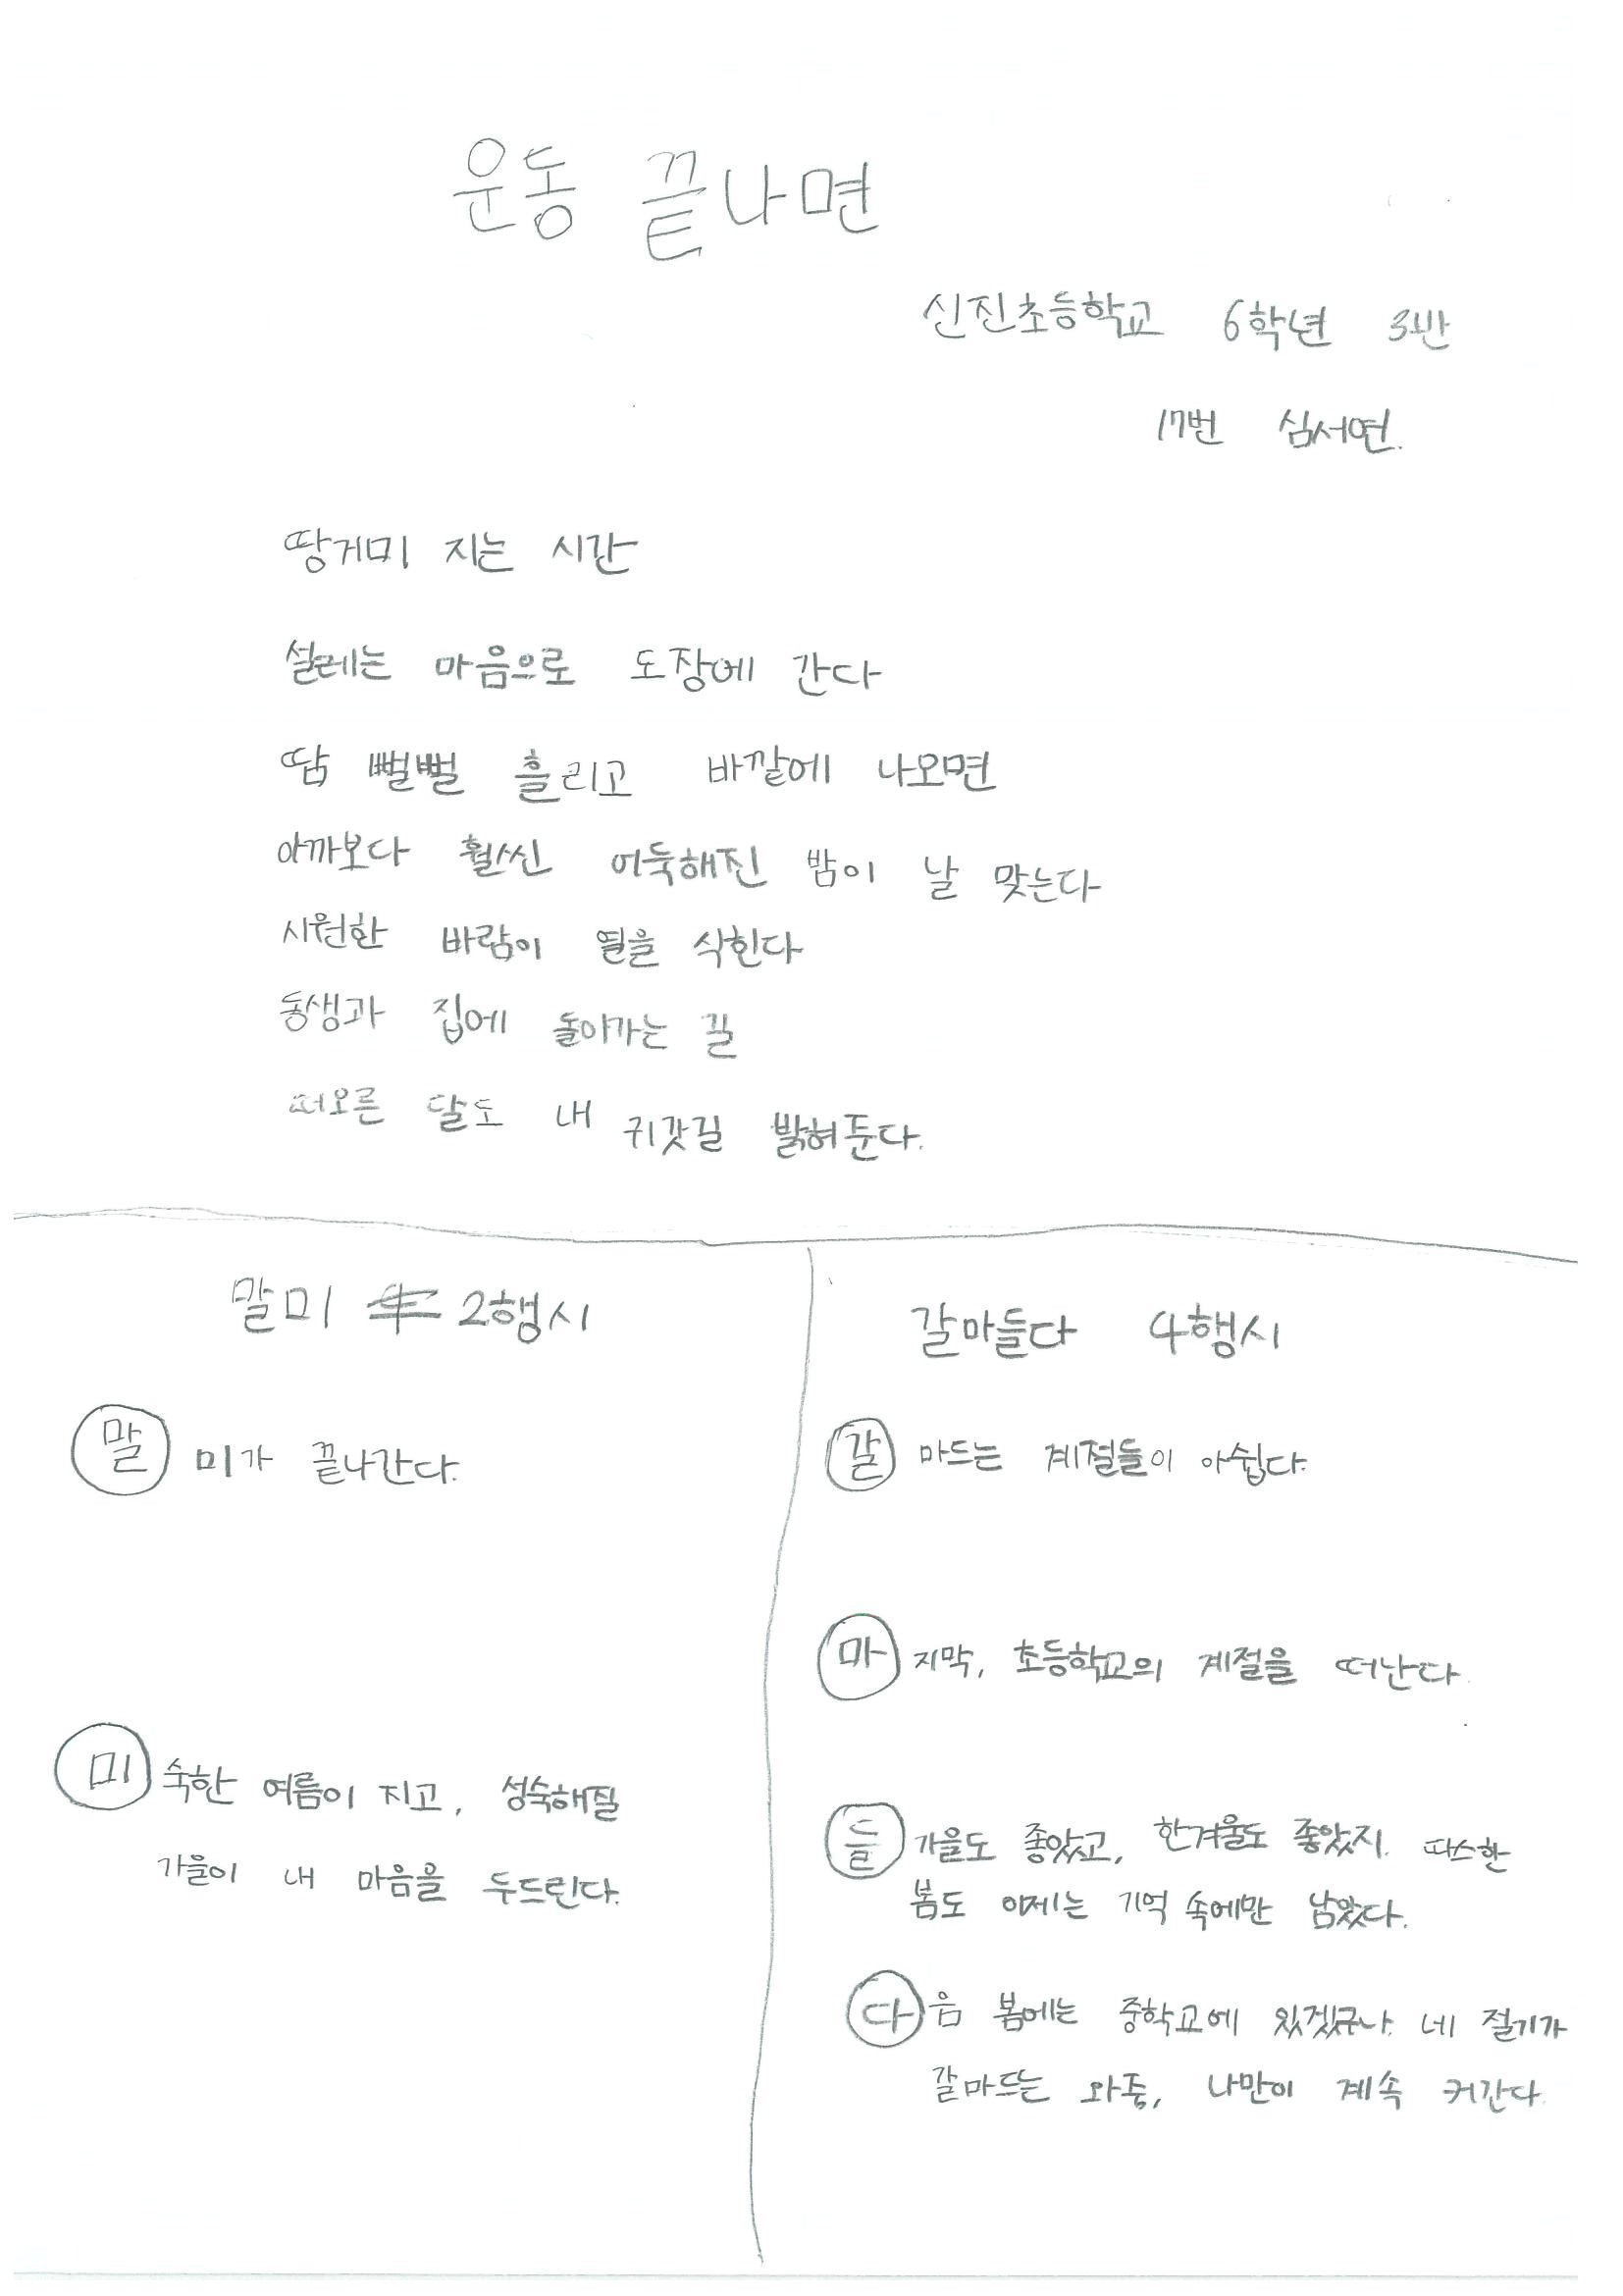 운동 끝나면
신진초등학교 6학년 3반
17번 심서연.
땅거미 지는 시간
설레는 마음으로 도장에 간다
땀 뻘뻘 흘리고 바깥에 나오면
아까보다 훨씬 어둑해진 밤이 날 맞는다
시원한 바람이 열을 식힌다
동생과 집에 돌아가는 길
떠오른 달도 내 귀갓길 밝혀둔다.
말미 2행시
말미가 끝나간다.
미숙한 여름이 지고, 성숙해질
가을이 내 마음을 두드린다.
갈마들다 4행시
갈마드는 계절들이 아쉽다.
마지막, 초등학교의 계절을 떠난다.
들가을도 좋았고, 한겨울도 좋았지. 따스한
봄도 이제는 기억 속에만 남았다.
다음 봄에는 중학교에 있겠구나. 네 절기가
갈마드는 와중, 나만이 계속 커간다.